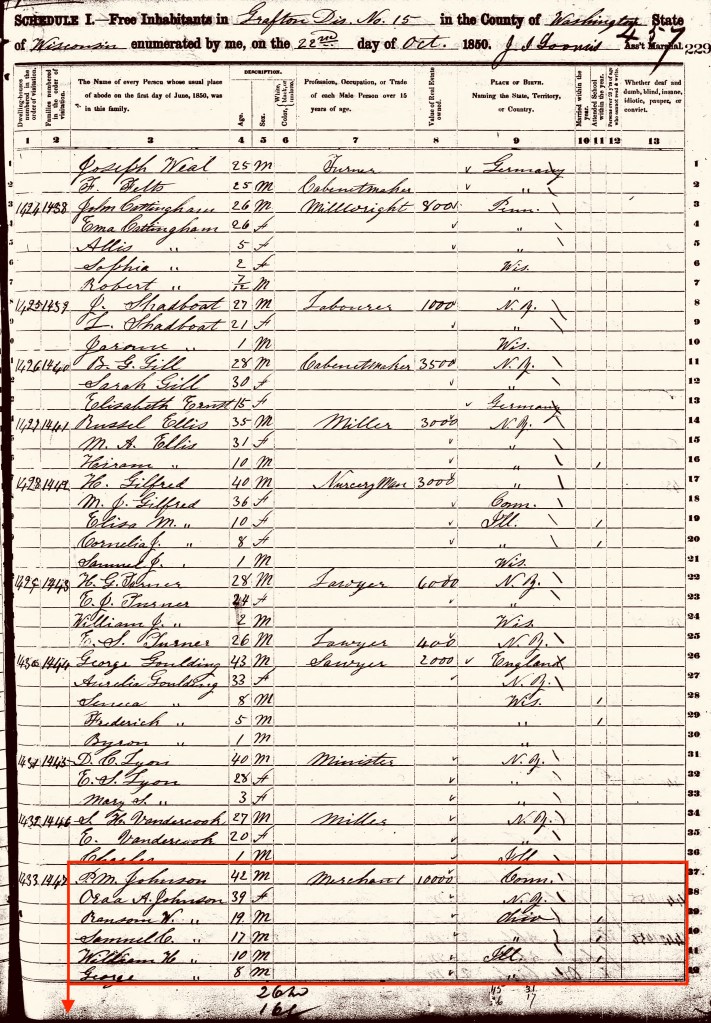 SCHEDULE I.—Free Inhabitants in Grafton Dis. No. 15 in the County of Washington State
of Wisconsin enumerated by me, on the 22nd day of Oct. 1850. J. Loomis Ass't Marshal.
457 229
Dwelling-houses numbered in the order of visitation.
Families numbered in the order of visitation.
The Name of every Person whose usual place of abode on the first day of June, 1850, was in this family.
DESCRIPTION.
Age.
Sex.
White, black, or mulatto. Color,
Profession, Occupation, or Trade of each Male Person over 15 years of age.
Value of Real Estate owned.
PLACE OF BIRTH. Naming the State, Territory, or Country.
Married within the year.
Attended School within the year.
Persons over 20 y'rs of age who cannot read & write.
Whether deaf and dumb, blind, insane, idiotic, pauper, or convict.
1 2 3 4 5 6 7 8 9 10 11 12 13
1 Joseph Weal 25 M Turner Germany 1
2 F. Felts 25 M Cabinetmaker " 2
3 1424 1438 John Cottingham 26 M Millwright 800 Penn. 3
4 Ema Cottingham 26 F " 4
5 Allis " 5 F " 5
6 Sophia " 2 F Wis. 6
7 Robert " 7/12 M " 7
8 1425 1439 J. Shadboat 27 M Labourer 1000 N.Y. 8
9 L. Shadboat 21 F " 9
10 Jarome " 1 M Wis. 10
11 1426 1440 B. G. Gill 28 M Cabenetmaker 3500 N.Y. 11
12 Sarah Gill 30 F " 12
13 Elisabeth Ernst 15 F Germany 13
14 1427 1441 Russel Ellis 35 M Miller 3000 N.Y. 14
15 M. A. Ellis 31 F " 15
16 Hiram " 10 M " 1 16
17 1428 1442 H. Gilfred 40 M Nurcery Man 3000 " 17
18 M. J. Gilfred 36 F Conn. 18
19 Elisa M. " 10 F Ill. 1 19
20 Cornelia J. " 8 F " 1 20
21 Samuel J. " 1 M Wis. 21
22 1429 1443 H. G. Turner 28 M Lawyer 6000 N.Y. 22
23 E. J. Turner 24 F " 23
24 William J. " 2 M Wis. 24
25 E. S. Turner 26 M Lawyer 400 N.Y. 25
26 1430 1444 George Goulding 43 M Sawyer 2000 England 26
27 Aurelia Goulding 33 F N.Y. 27
28 Seneca " 8 M Wis. 1 28
29 Frederich " 5 M " 1 29
30 Byron " 1 M " 30
31 1431 1445 D. C. Lyon 40 M Minister N.Y. 31
32 E. S. Lyon 28 F " 32
33 Mary S. " 3 F " 33
34 1432 1446 S. H. Vandercook 27 M Miller N.Y. 34
35 E. Vandercook 20 F " 35
36 Charles 1 M Ill. 36
1433 1447 P. M. Johnson 42 M Merchant 10000 Conn. 37
Oraa A. Johnson 39 F N.Y. 38
Ransom W. " 19 M Ohio 1 39
Samuel C. " 17 M " 1 40
William H " 10 M Ill. 1 41
George 8 M " 42
26 16
45 31
26 17